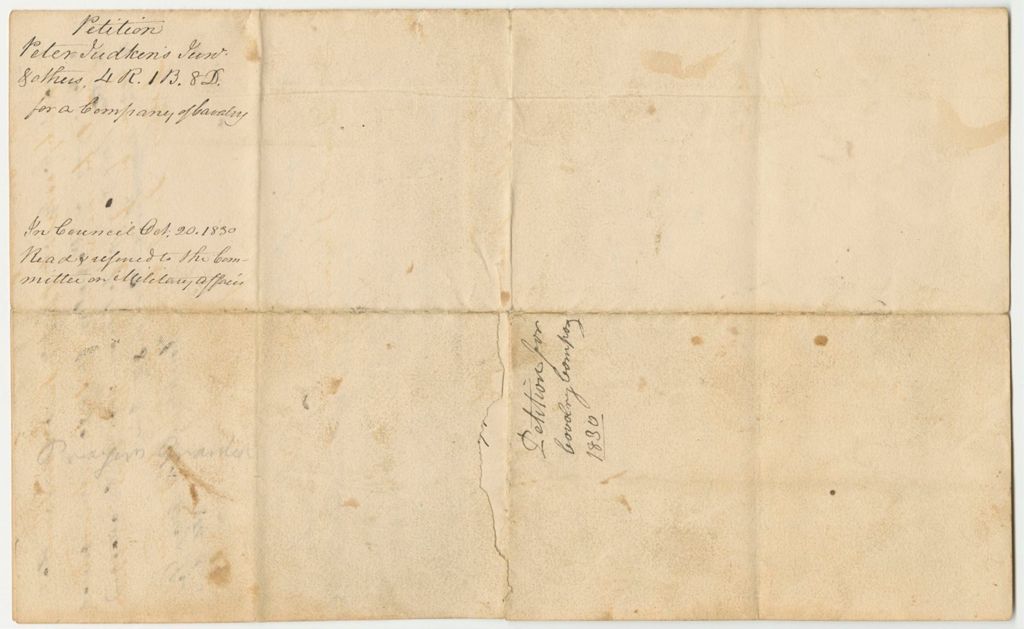 Petition
Peter Judkins Junr
& others, 4 R. 1 B. 8 D.
for a Company of Cavalry
In Council Oct. 20. 1830
Read & referred to the Com-
mittee on Military Affairs
Petition for
Cavalry Company
1830
Prayer Granted